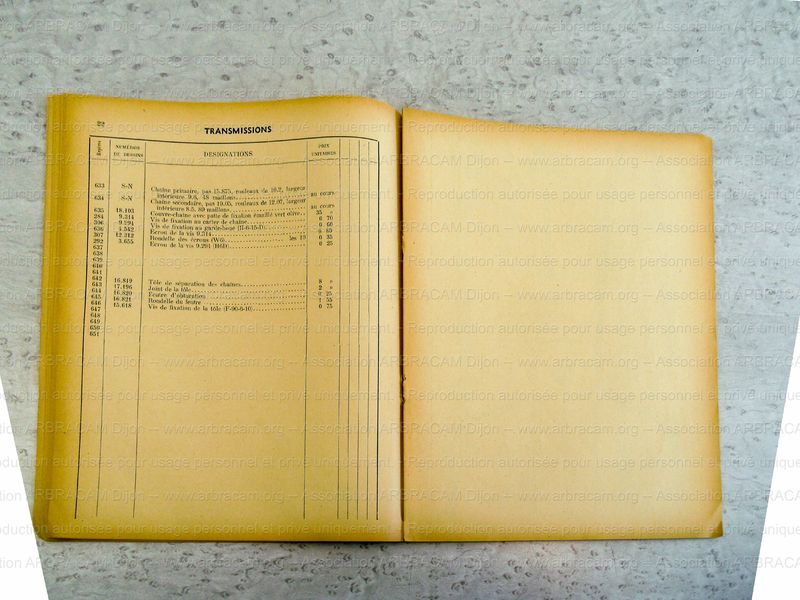 22
TRANSMISSIONS
Repères
NUMÉROS DE DESSINS
DESIGNATIONS
PRIX UNITAIRES
633 S-N Chaîne primaire, pas 15.875, rouleaux de 10.2, largeur
intérieure 9.6, 48 maillons au cours
634 S-N Chaîne secondaire, pas 19.05, rouleaux de 12.07, largeur
intérieure 8.5, 89 maillons au cours
635 18.103 Couvre-chaîne avec patte de fixation émaillé vert olive 35 »
284 9.314 Vis de fixation au carter de chaîne 0 70
306 9.294 Vis de fixation au garde-boue (H-6-15-D) 0 60
636 4.542 Ecrou de la vis 9.314 0 80
307 12.212 Rondelle des écrous (WG) les 10 0 35
292 3.655 Ecrou de la vis 9.291 (H6D) 0 25
637
638
639
640
641
642 16.819 Tôle de séparation des chaînes 8 »
643 17.196 Joint de la tôle 2 »
644 16.820 Feutre d'obturation 0 25
645 16.821 Rondelle du feutre 1 55
646 15.618 Vis de fixation de la tôle (F-90-6-10) 0 75
647
648
649
650
651
Reproduction autorisée pour usage personnel et privé uniquement.
Association ARBRACAM Dijon – www.arbracam.org –